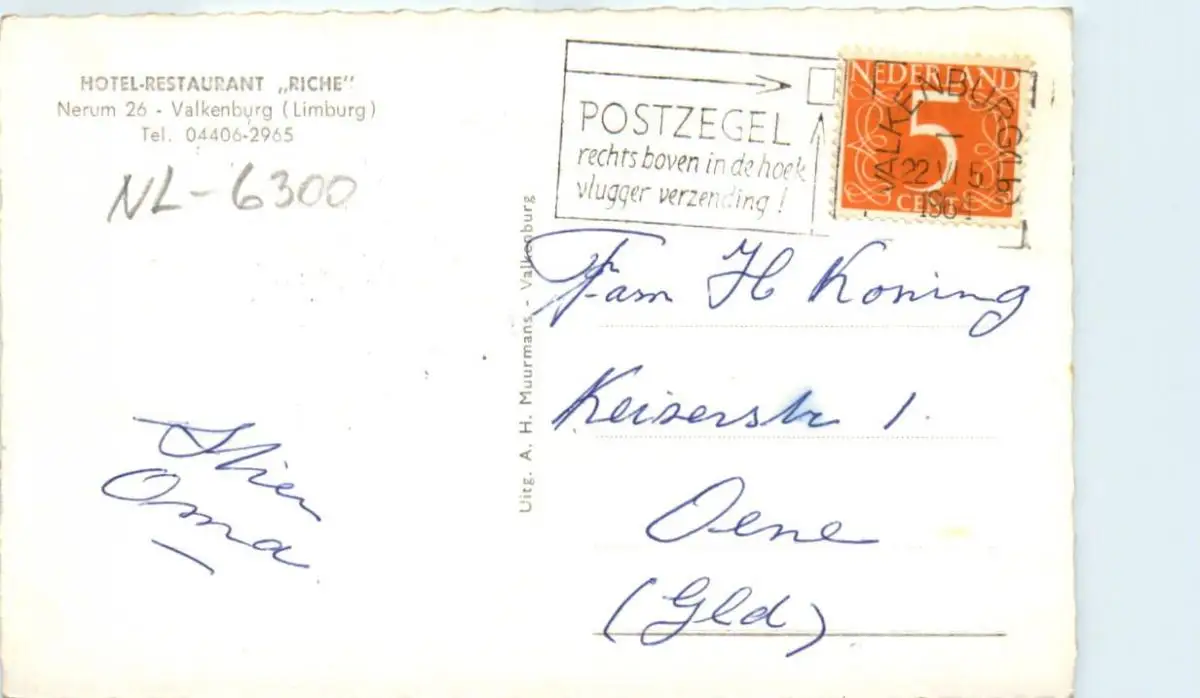 HOTEL-RESTAURANT „RICHE"
Nerum 26 - Valkenburg (Limburg)
Tel. 04406-2965
NL-6300
POSTZEGEL
rechts boven in de hoek
vlugger verzending!
NEDERLAND
5
CENT
VALKENBURG
22 VI 5
Uitg. A. H. Muurmans - Valkenburg
Fam H Koning
Keiserstr 1.
Oene
(Gld)
Oma